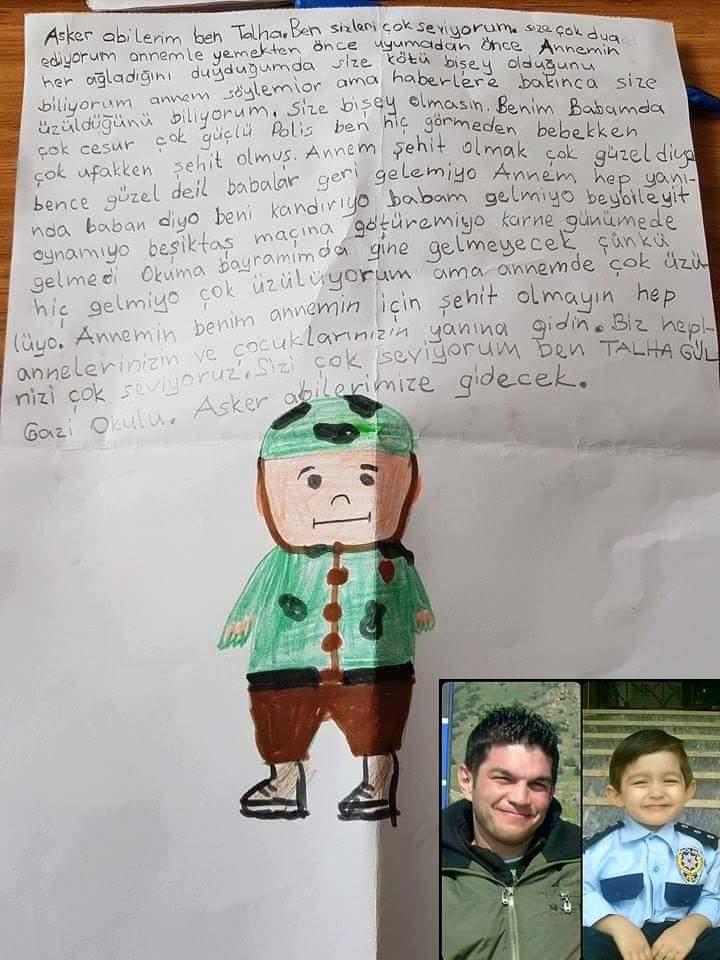 Asker abilerim ben Talha. Ben sizleri çok seviyorum. size çok dua
ediyorum annemle yemekten önce uyumadan önce Annemin
her ağladığını duyduğumda size kötü bişey olduğunu
biliyorum annem söylemior ama haberlere bakınca size
üzüldüğünü biliyorum. Size bişey olmasın. Benim Babamda
çok cesur çok güçlü Polis ben hiç görmeden bebekken
çok ufakken şehit olmuş. Annem şehit olmak çok güzel diyo
bence güzel deil babalar geri gelemiyo Annem hep yanı-
nda baban diyo beni kandırıyo babam gelmiyo beybileyit
oynamıyo beşiktaş maçına götüremiyo karne günümede
gelmedi Okuma bayramımda gine gelmeyecek çünkü
hiç gelmiyo çok üzülüyorum ama annemde çok üzü
lüyo. Annemin benim annemin için şehit olmayın hep
annelerinizin ve çocuklarınızın yanına gidin. Biz hepi-
nizi çok seviyoruz. Sizi çok seviyorum ben TALHA GÜL
Gazi Okulu. Asker abilerimize gidecek.
POLİS